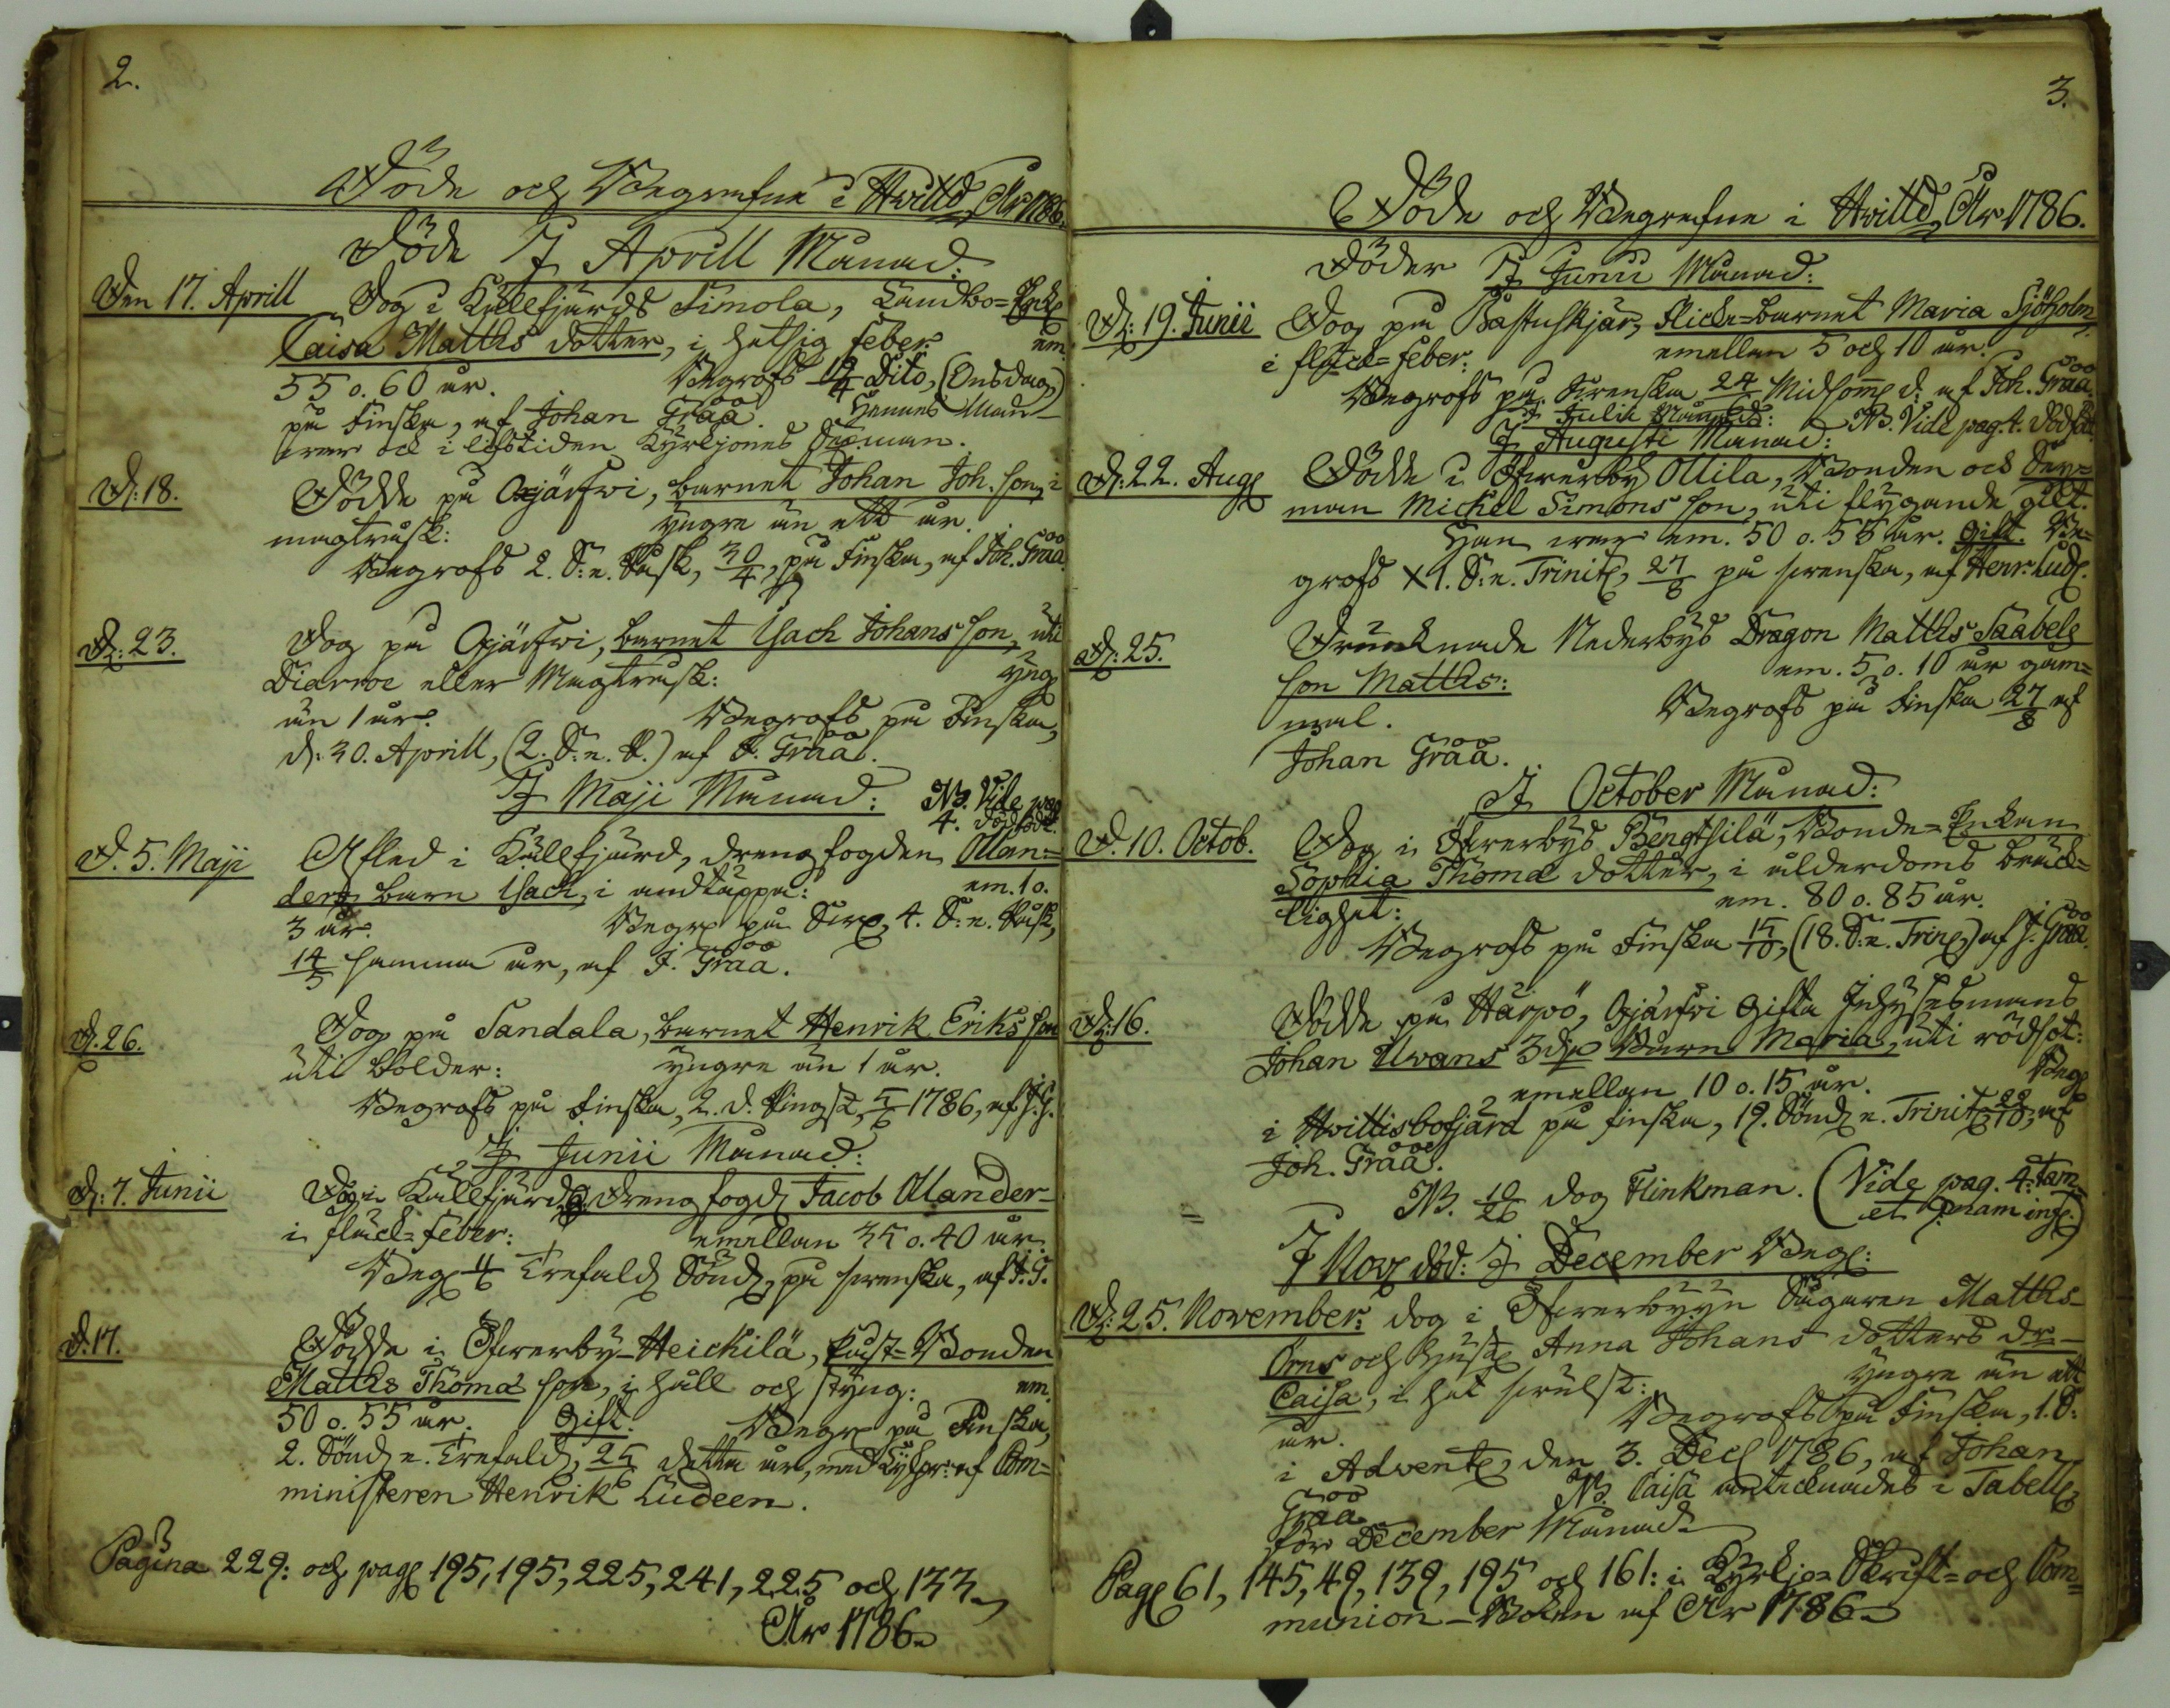 2.
Döde och Begrafne i Hvittd, År 1786.
Döde I Aprill Månad:
Den 17. Aprill Dog i Källfjärds Simola, Landbo=Enk
Caisa Matths dotter, i hetsig feber. em.
55 o. 60 år. Begrofs 19/4 Dito, (Onsdag,)
på Finska, af Johan Gråå. Hennes Man
war ock i lifstiden Kyrkjones Sexman.
D: 18. Födde på Ojärfwi, barnet Johan Joh. son, i
magtrusk: yngre än ett år.
Begrofs 2. S: e. Påsk, 30/4, på Finska, af Joh. Gråå.
D: 23. Dog på Ojärfwi, barnet Isach Johans son, uti
Diarroe eller Magtrusk: yng
än 1 år. Begrofs på Finska,
d: 30. Aprill, (2. S: e. P.) af J. Gråå.
I Maji Månad: NB. Vide pag
4. dödföd.
D. 5. Maji Afled i Källfjärd, drengfogden Olan=
ders barn Isach, i andtäppa: em. 1 o.
3 år. Begr på Sw, 4. S: e. Påsk,
14/5 samma år, af J. Gråå.
D. 26. Dog på Sandala, barnet Henrik Eriks son
uti Bolder: yngre än 1 år.
Begrofs på Finska, 2. d. Pingst, 5/6 1786, af J. G.
I Junii Månad:
D: 7. Junii Dog i Källfjärd, Drengfogd Jacob Olander
i fläck=feber: emellan 35 o. 40 år.
Beg 11/6 Trefald Sönd, på swenska, af J. G.
D. 17. Dödde i Öfwerby=Heickilä, Bonden
Matths Thomæ son, i håll och styng: em.
50 o. 55 år. Gift. Begr på Finska,
2. Sönd e. Trefald, 25/6 detta år, med af Com=
ministeren Henrik Ludeen.
Pagina 229: och pag 195, 195, 225, 241, 225 och 133
År 1786.
3.
Döde och Begrafne i Hvittd, År 1786.
Döder I Junii Månad:
D: 19. Junii Dog på Bastuskjär, Flicke=barnet Maria Sjöholm,
i fläck=feber: emellan 5 och 10 år.
Begrofs på Swenska 24/6 Midsomm d: af Joh. Gråå.
I Julii Månad: NB. Vide pag. 4. Dödföd
I Augusti Månad:
D: 22. Aug Dödde i Öfwerby Ollila, Bonden och Sex=
man Michel Simons son, uti flygande gikt.
Han war em. 50 o. 55 år. Gift. Be=
grofs XI. S: e. Trinit, 27/8 på swenska, af Herr. Lud.
D: 25. Drunknade Nederbys Dragon Matths Saabels
son Matths: em. 5 o. 10 år gam=
mal. Begrofs på Finska 27/8 af
Johan Gråå.
I October Månad:
D. 10. Octob. Dog i Öfwerbys Bengtsilä, Bonde=Enkan
Sophia Thomæ dotter, i ålderdoms bräck=
lighet: em. 80 o. 85 år.
Begrofs på Finska 15/10, (18. S: e. Trin,) af J. Gråå.
D: 16. Dödde på Härpö, Ojärfwi Gifta Inhysesmans
Johan Uvans 3dje Barn Maria, uti rödsot:
emellan 10 o. 15 år. Beg
i Hvittisbofjärd på finska, 19. Sönd e. Trinit 22/10, af
Joh. Gråå.
NB. 10/26 dog Flinkman. (Vide pag. 4: tam
et quam inf.)
I Nov död: I December Beg:
D: 25. November: dog i Öfwerbyyn Sågaren Matths
Örns och Hust Anna Johans dotters dr
Caisa, i het swulst: yngre än ett
år. Begrofs på Finska, 1. S:
i Advent, den 3. Dec 1786, af Johan
Gråå. NB. Caisa antecknades i Tabell
för December Månad.
Pag 61, 145, 49, 139, 195 och 161: i Kyrkjo= Skrift= och Com=
munion=Boken af År 1786.